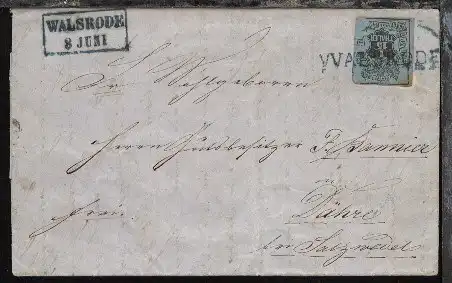 WALSRODE
8 JUNI
WALSRODE
Sr. Wohlgeboren
Herrn Gutsbesitzer
Frei.
Dähre
bei Salzwedel